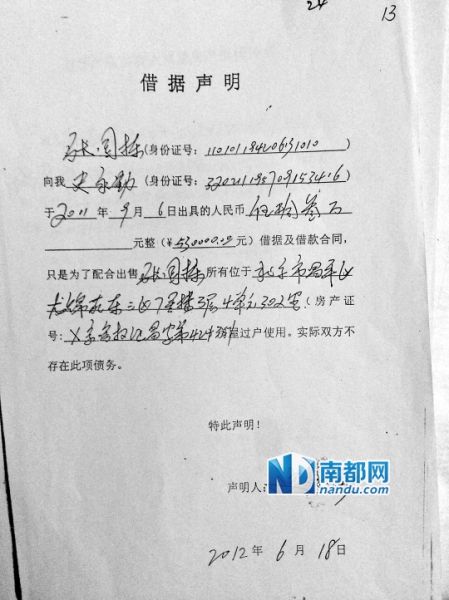 24
13
借据声明
国栋(身份证号:
向我 史 (身份证号:
于 2011 年 9 月 6 日出具的人民币 伍拾叁万
元整(¥530000.00 元)借据及借款合同,
只是为了配合出售 国栋 所有位于 北京市昌平区
东三区7号楼3层4单元302室(房产证
号: X京房权证昌字第 屋过户使用。实际双方不
存在此项债务。
特此声明!
声明人:
南都网
nandu.com
2012 年 6 月 18 日